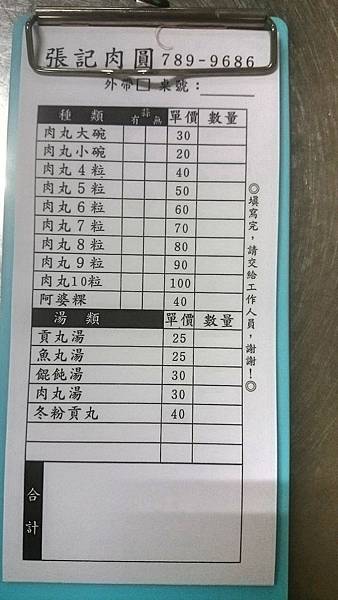 張記肉圓 789-9686
外帶□ 桌號：
種類 有 蒜 無 單價 數量
肉丸大碗 30
肉丸小碗 20
肉丸4粒 40
肉丸5粒 50
肉丸6粒 60
肉丸7粒 70
肉丸8粒 80
肉丸9粒 90
肉丸10粒 100
阿婆粿 40
湯類 單價 數量
貢丸湯 25
魚丸湯 25
餛飩湯 30
肉丸湯 30
冬粉貢丸 40
合計
◎填寫完，請交給工作人員，謝謝！◎